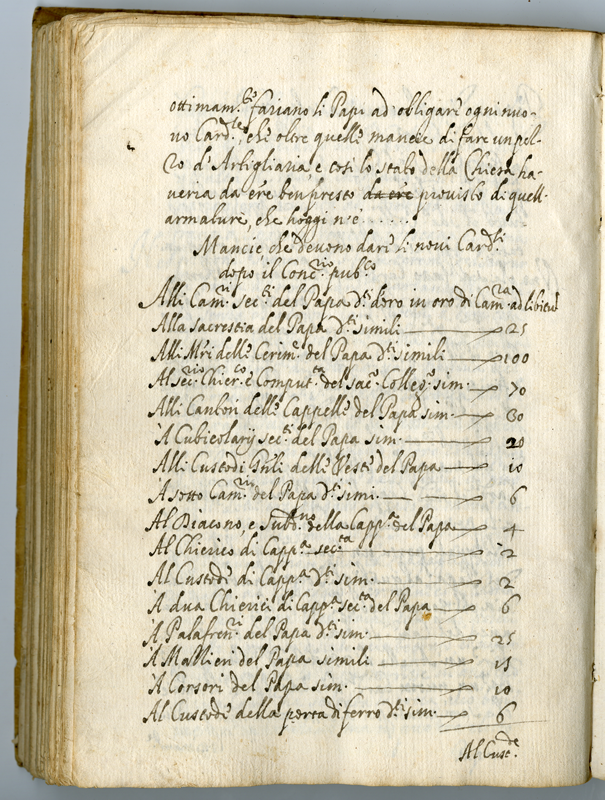 ottimam.te fariano li Papi ad obligare ogni nuo-
vo Card.le, che oltre quelle mancie di fare un pel-
zo d'Artigliaria, e così lo stato della Chiesa ha-
veria da ere ben presto da ere provisto di quell-
armature, che hoggi n'è . . . . . .
Mancie, che devono dare li novi Card.li
dopo il Conc.rio pub.co
Alli Cam.ri sec.ti del Papa d.ti d'oro in oro di Cam.ra ad libitu
Alla sacrestia del Papa d.ti simili 25
Alli M'ri delle Cerim.e del Papa d.ti simili 100
Al sec.rio Chier.co e Comput.ta del sac.o Colleg.o sim. 70
Alli Cantori delle Cappelle del Papa sim. 30
A Cubicolary sec.ti del Papa sim. 20
Alli Custodi delle Veste del Papa 10
A sotto Cam.ri del Papa d.ti simi. 6
Al Diacono, e Subd.no della Capp.a del Papa 4
Al Chierico di Capp.a sec.ta 2
Al Custode di Capp.a d.ti sim. 2
A dua Chierici di Capp.a sec.ta del Papa 6
A Palafren.ri del Papa d.ti sim. 25
A Mazzieri del Papa simili 15
A Corsori del Papa sim. 10
Al Custode della porta di ferro d.ti sim. 6
Al Cust.de